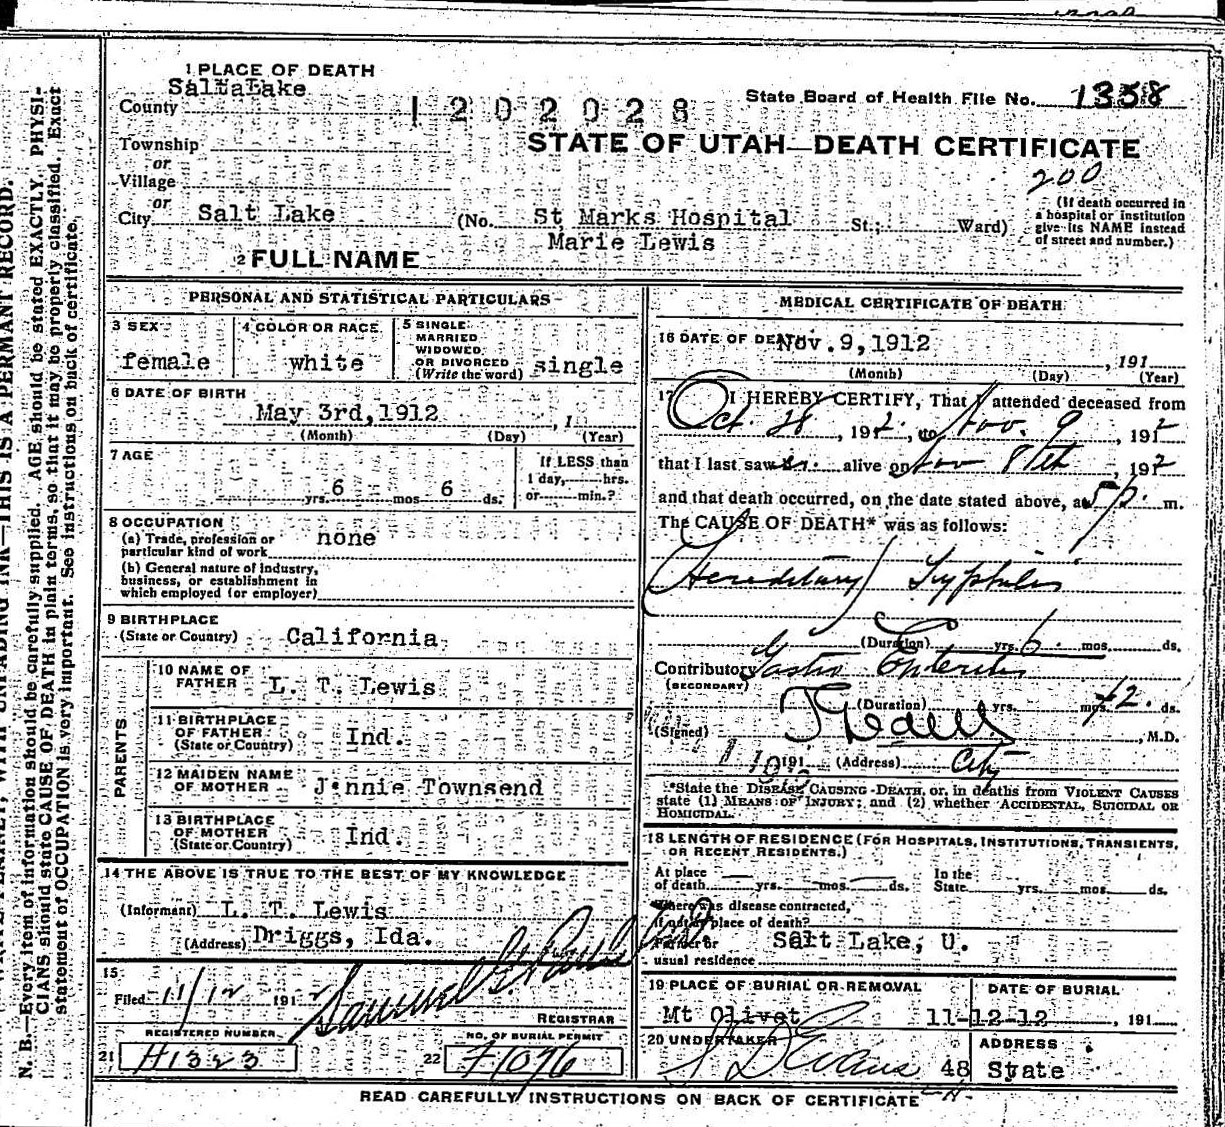 1 PLACE OF DEATH
County Salt Lake
1202028
State Board of Health File No. 1358
Township
or
Village
or
STATE OF UTAH—DEATH CERTIFICATE
200
City Salt Lake (No. St Marks Hospital St.; Ward)
(If death occurred in a hospital or institution give its NAME instead of street and number.)
2 FULL NAME Marie Lewis
PERSONAL AND STATISTICAL PARTICULARS
3 SEX
female
4 COLOR OR RACE
white
5 SINGLE
MARRIED
WIDOWED
OR DIVORCED
(Write the word) single
6 DATE OF BIRTH
May 3rd,1912 , 1
(Month) (Day) (Year)
7 AGE
yrs. 6 mos 6 ds.
If LESS than
1 day, hrs.
or min.?
8 OCCUPATION
(a) Trade, profession or
particular kind of work none
(b) General nature of industry,
business, or establishment in
which employed (or employer)
9 BIRTHPLACE
(State or Country) California
PARENTS
10 NAME OF
FATHER L. T. Lewis
11 BIRTHPLACE
OF FATHER
(State or Country) Ind.
12 MAIDEN NAME
OF MOTHER Jinnie Townsend
13 BIRTHPLACE
OF MOTHER
(State or Country) Ind.
14 THE ABOVE IS TRUE TO THE BEST OF MY KNOWLEDGE
(Informant) L. T. Lewis
(Address) Driggs, Ida.
15
Filed 11/12 1912 Samuel G.
REGISTRAR
REGISTERED NUMBER
21 H1323
NO. OF BURIAL PERMIT
22 F1076
MEDICAL CERTIFICATE OF DEATH
16 DATE OF DEATH Nov.9,1912 , 191
(Month) (Day) (Year)
17 I HEREBY CERTIFY, That I attended deceased from
Oct. 28, 1912, to Nov. 9, 1912
that I last saw er alive on Nov 8th, 1912
and that death occurred, on the date stated above, at 5 p. m.
The CAUSE OF DEATH* was as follows:
(Hereditary) Syphilis
(Duration) yrs. 6 mos. ds.
Contributory Gastro Enteritis
(SECONDARY)
(Duration) yrs. mos. 12. ds.
(Signed) , M.D.
191 (Address) City
*State the DISEASE CAUSING DEATH, or, in deaths from VIOLENT CAUSES
state (1) MEANS OF INJURY; and (2) whether ACCIDENTAL, SUICIDAL OR
HOMICIDAL.
18 LENGTH OF RESIDENCE (FOR HOSPITALS, INSTITUTIONS, TRANSIENTS,
OR RECENT RESIDENTS.)
At place
of death yrs. mos. ds.
In the
State yrs. mos. ds.
Where was disease contracted,
if not at place of death?
Former or
usual residence Salt Lake, U.
19 PLACE OF BURIAL OR REMOVAL
Mt Olivet
DATE OF BURIAL
11-12-12 , 191
20 UNDERTAKER
S D Evans
ADDRESS
48 State
READ CAREFULLY INSTRUCTIONS ON BACK OF CERTIFICATE
N. B.—Every item of information should be carefully supplied. AGE should be stated EXACTLY. PHYSI-
CIANS should state CAUSE OF DEATH in plain terms, so that it may be properly classified. Exact
statement of OCCUPATION is very important. See instructions on back of certificate.
WITH UNFADING INK—THIS IS A PERMANT RECORD.